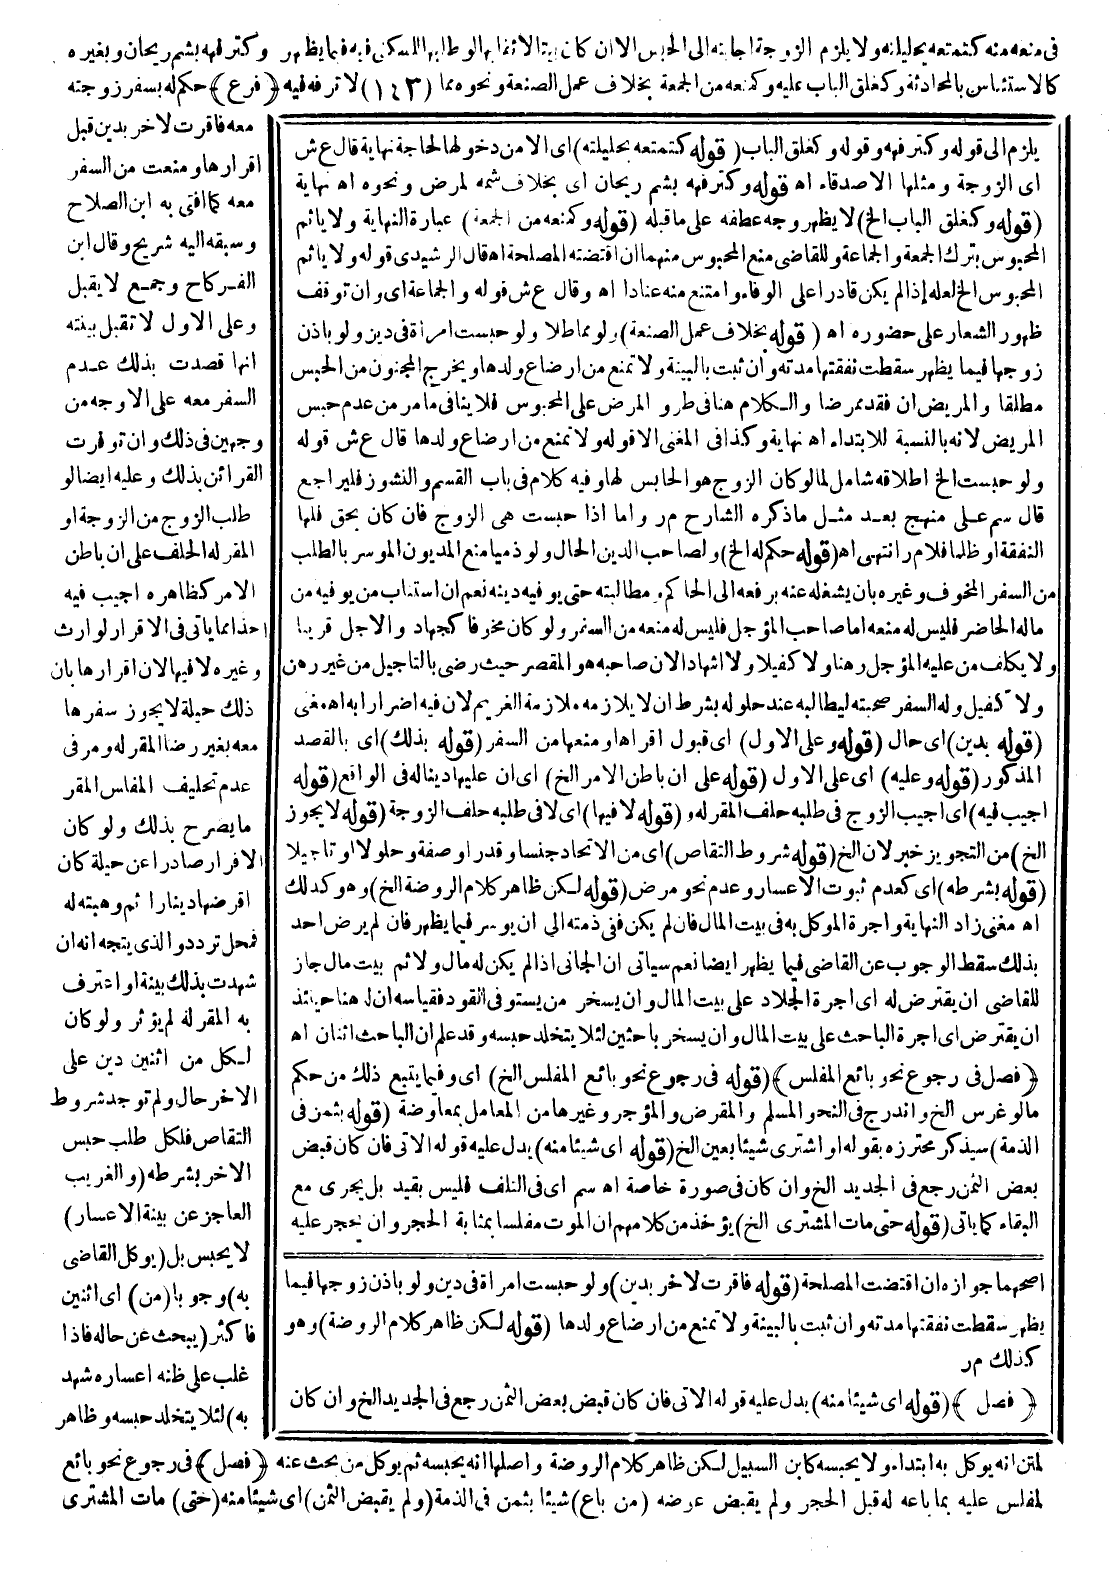 فى منعه منه كتمتعه بحليلته ولا يلزم الزوجة اجابته الى الحبس الا ان كان بيتا لائقا بها لو طلبها للسكنى فيه فيما يظهر وكترفهه بشم ريحان وبغيره
كالاستئناس بالمحادثة وكغلق الباب عليه وكمنعه من الجمعة بخلاف عمل الصنعة ونحوه مما (١٤٣) لا ترفه فيه ﴿فرع﴾ حكم له بسفر زوجته
معه فاقرت لاخر بدين قبل
اقرارها ومنعت من السفر
معه كما افتى به ابن الصلاح
وسبقه اليه شريح وقال ابن
الفركاح وجمع لا يقبل
وعلى الاول لا تقبل بينته
انها قصدت بذلك عدم
السفر معه على الاوجه من
وجهين فى ذلك وان توفرت
القرائن بذلك وعليه ايضا لو
طلب الزوج من الزوجة او
المقر له الحلف على ان باطن
الامر كظاهره اجيب فيه
اخذا مما ياتى فى الاقرار لوارث
وغيره لا فيها لان اقرارها بان
ذلك حيلة لا يجوز سفرها
معه بغير رضا المقر له ومر فى
عدم تحليف المفلس المقر
ما يصرح بذلك ولو كان
الاقرار صادرا عن حيلة كان
اقرضها دينارا ثم وهبته له
فمحل تردد والذى يتجه انه ان
شهدت بذلك بينة او اعترف
به المقر له لم يؤثر ولو كان
لكل من اثنين دين على
الاخر حال ولم توجد شروط
التقاص فلكل طلب حبس
الاخر بشرطه (والغريب
العاجز عن بينة الاعسار)
لا يحبس بل (يوكل القاضى
به) وجوبا (من) اى اثنين
فاكثر (يبحث عن حاله فاذا
غلب على ظنه اعساره شهد
به) لئلا يتخلد حبسه وظاهر
يلزم الى قوله وكترفهه وقوله وكغلق الباب (قوله كتمتعه بحليلته) اى الا من دخولها لحاجة نهاية قال ع ش
اى الزوجة ومثلها الاصدقاء اه (قوله وكترفهه بشم ريحان) اى بخلاف شمه لمرض ونحوه اه نهاية
(قوله وكغلق الباب الخ) لا يظهر وجه عطفه على ما قبله (قوله وكمنعه من الجمعة) عبارة النهاية ولا ياثم
المحبوس بترك الجمعة والجماعة وللقاضى منع المحبوس منهما ان اقتضته المصلحة اه قال الرشيدى قوله ولا ياثم
المحبوس الخ لعله إذا لم يكن قادرا على الوفاء وامتنع منه عنادا اه وقال ع ش قوله والجماعة اى وان توقف
ظهور الشعار على حضوره اه (قوله بخلاف عمل الصنعة) ولو مماطلا ولو حبست امراة فى دين ولو باذن
زوجها فيما يظهر سقطت نفقتها مدته وان ثبت بالبينة ولا تمنع من ارضاع ولدها ويخرج المجنون من الحبس
مطلقا والمريض ان فقد ممرضا والكلام هنا فى طرو المرض على المحبوس فلا ينافى ما مر من عدم حبس
المريض لانه بالنسبة للابتداء اه نهاية وكذا فى المغنى الا قوله ولا تمنع من ارضاع ولدها قال ع ش قوله
ولو حبست الخ اطلاقه شامل لما لو كان الزوج هو الحابس لها وفيه كلام فى باب القسم والنشوز فليراجع
قال سم على منهج بعد مثل ما ذكره الشارح مر واما اذا حبست هى الزوج فان كان بحق فلها
النفقة او ظلما فلا م ر انتهى اه (قوله حكم له الخ) ولصاحب الدين الحال ولو ذميا منع المديون الموسر بالطلب
من السفر المخوف وغيره بان يشغله عنه برفعه الى الحاكم ومطالبته حتى يوفيه دينه نعم ان استناب من يوفيه من
ماله الحاضر فليس له منعه اما صاحب المؤجل فليس له منعه من السفر ولو كان مخوفا كجهاد والاجل قريبا
ولا يكلف من عليه المؤجل رهنا ولا كفيلا ولا اشهادا لان صاحبه هو المقصر حيث رضى بالتاجيل من غير رهن
ولا كفيل وله السفر صحبته ليطالبه عند حلوله بشرط ان لا يلازمه ملازمة الغريم لان فيه اضرارا به اه مغنى
(قوله بدين) اى حال (قوله وعلى الاول) اى قبول اقرارها ومنعها من السفر (قوله بذلك) اى بالقصد
المذكور (قوله وعليه) اى على الاول (قوله على ان باطن الامر الخ) اى ان عليها دينا له فى الواقع (قوله
اجيب فيه) اى اجيب الزوج فى طلبه حلف المقر له و (قوله لا فيها) اى لا فى طلبه حلف الزوجة (قوله لا يجوز
الخ) من التجويز خبر لان الخ (قوله شروط التقاص) اى من الاتحاد جنسا وقدرا وصفة وحلولا او تاجيلا
(قوله بشرطه) اى كعدم ثبوت الاعسار وعدم نحو مرض (قوله لكن ظاهر كلام الروضة الخ) وهو كذلك
اه مغنى زاد النهاية واجرة الموكل به فى بيت المال فان لم يكن ففى ذمته الى ان يوسر فيما يظهر فان لم يرض احد
بذلك سقط الوجوب عن القاضى فيما يظهر ايضا نعم سياتى ان الجانى اذا لم يكن له مال ولا ثم بيت مال جاز
للقاضى ان يقترض له اى اجرة الجلاد على بيت المال وان يسخر من يستوفى القود فقياسه ان له هنا حينئذ
ان يقترض اى اجرة الباحث على بيت المال وان يسخر باحثين لئلا يتخلد حبسه وقد علم ان الباحث اثنان اه
﴿فصل فى رجوع نحو بائع المفلس﴾ (قوله فى رجوع نحو بائع المفلس الخ) اى وفيما يتبع ذلك من حكم
ما لو غرس الخ واندرج فى النحو المسلم والمقرض والمؤجر وغيرها من المعامل بمعاوضة (قوله بثمن فى
الذمة) سيذكر محترزه بقوله او اشترى شيئا بعين الخ (قوله اى شيئا منه) يدل عليه قوله الاتى فان كان قبض
بعض الثمن رجع فى الجديد الخ وان كان فى صورة خاصة اه سم اى فى التلف فليس بقيد بل يجرى مع
البقاء كما ياتى (قوله حتى مات المشترى الخ) يؤخذ من كلامهم ان الموت مفلسا بمثابة الحجر وان حجر عليه
اصحهما جوازه ان اقتضت المصلحة (قوله فاقرت لاخر بدين) ولو حبست امراة فى دين ولو باذن زوجها فيما
يظهر سقطت نفقتها مدته وان ثبت بالبينة ولا تمنع من ارضاع ولدها (قوله لكن ظاهر كلام الروضة) وهو
كذلك مر
﴿فصل﴾ (قوله اى شيئا منه) يدل عليه قوله الاتى فان كان قبض بعض الثمن رجع فى الجديد الخ وان كان
لمتن انه يوكل به ابتداء ولا يحبسه كابن السبيل لكن ظاهر كلام الروضة واصلها انه يحبسه ثم يوكل من بحث عنه ﴿فصل﴾ فى رجوع نحو بائع
لمفلس عليه بما باعه له قبل الحجر ولم يقبض عوضه (من باع) شيئا بثمن فى الذمة (ولم يقبض الثمن) اى شيئا منه (حتى) مات المشترى